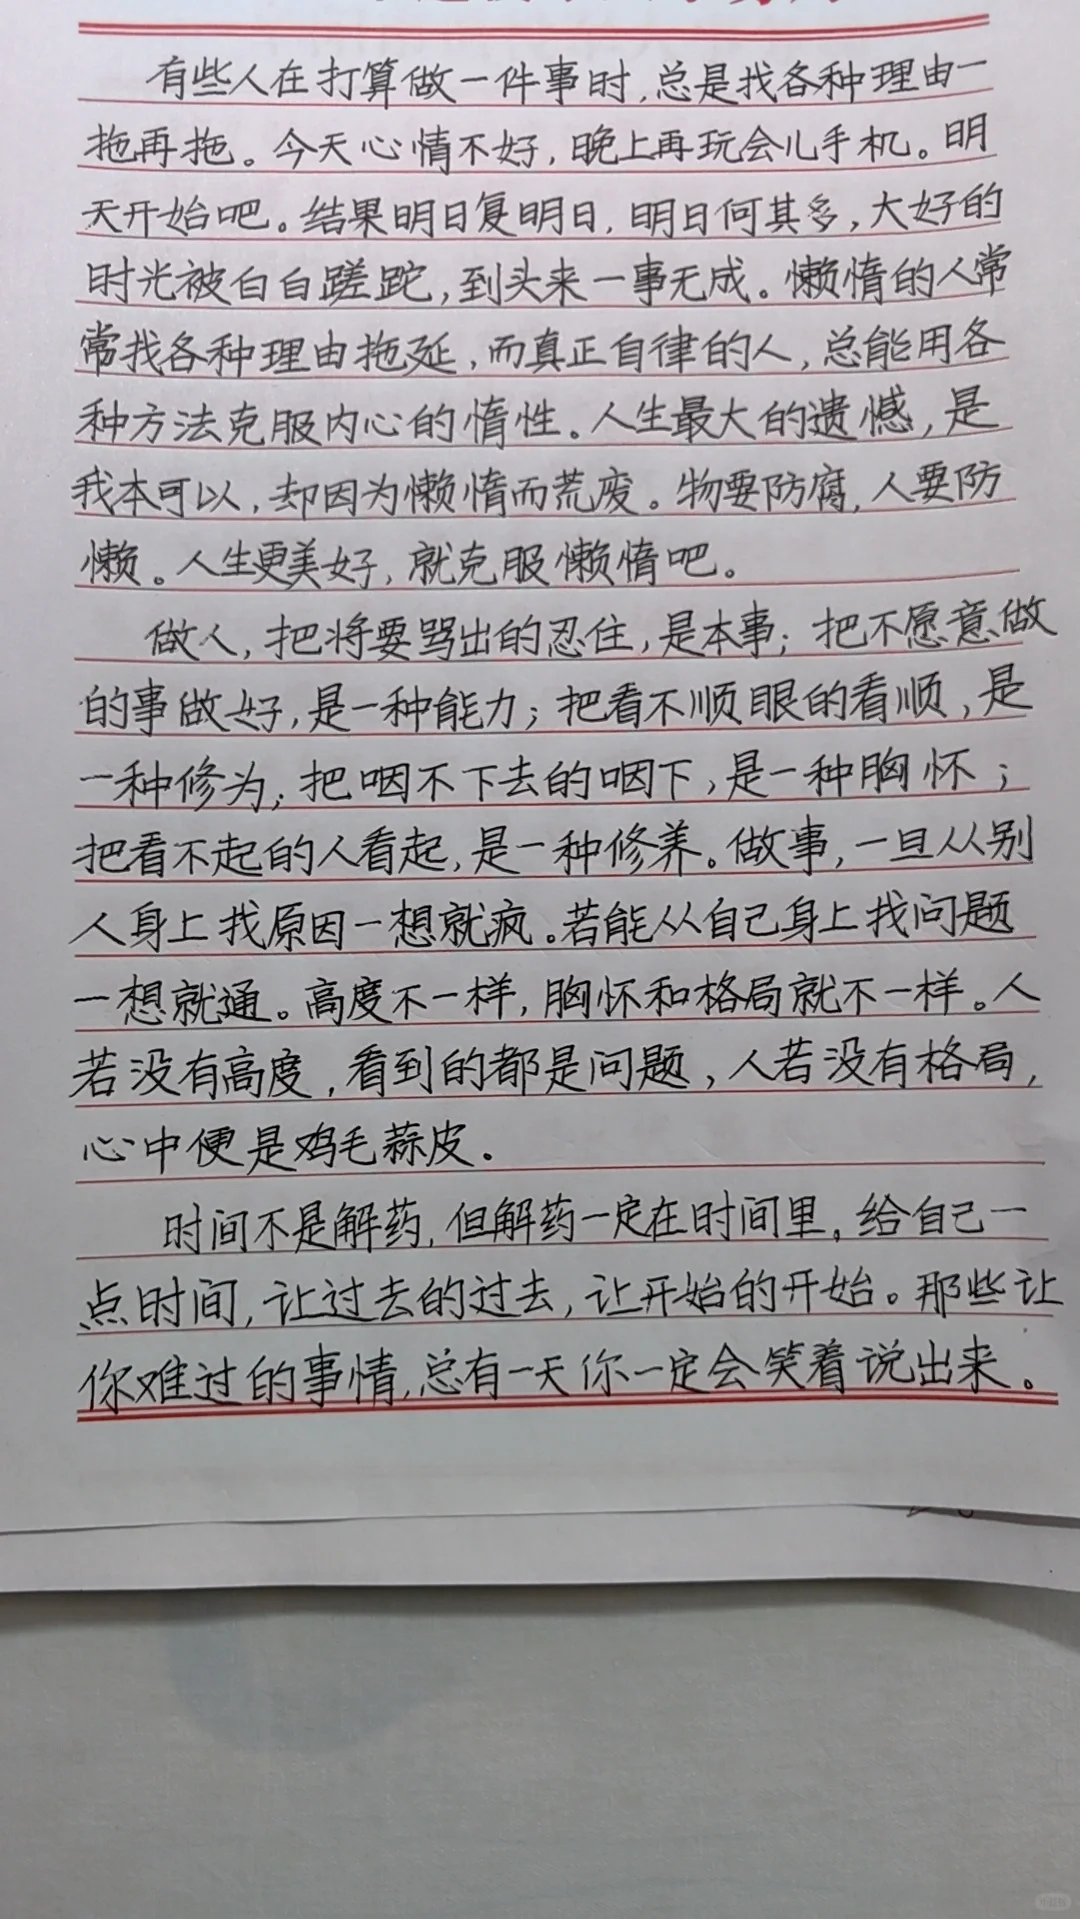 有些人在打算做一件事时,总是找各种理由一
拖再拖。今天心情不好,晚上再玩会儿手机。明
天开始吧。结果明日复明日,明日何其多,大好的
时光被白白蹉跎,到头来一事无成。懒惰的人常
常找各种理由拖延,而真正自律的人,总能用各
种方法克服内心的惰性。人生最大的遗憾,是
我本可以,却因为懒惰而荒废。物要防腐,人要防
懒。人生更美好,就克服懒惰吧。
做人,把将要骂出的忍住,是本事;把不愿意做
的事做好,是一种能力;把看不顺眼的看顺,是
一种修为;把咽不下去的咽下,是一种胸怀;
把看不起的人看起,是一种修养。做事,一旦从别
人身上找原因一想就疯。若能从自己身上找问题
一想就通。高度不一样,胸怀和格局就不一样。人
若没有高度,看到的都是问题,人若没有格局,
心中便是鸡毛蒜皮。
时间不是解药,但解药一定在时间里。给自己一
点时间,让过去的过去,让开始的开始。那些让
你难过的事情,总有一天你一定会笑着说出来。